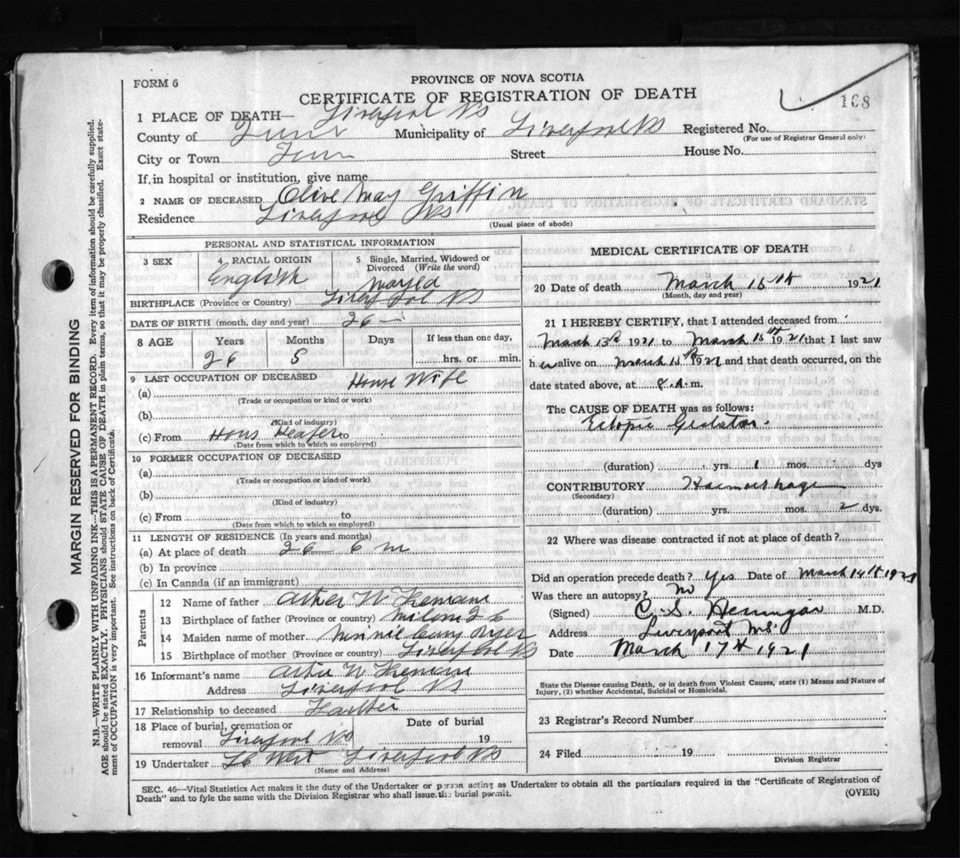 FORM 6
PROVINCE OF NOVA SCOTIA
CERTIFICATE OF REGISTRATION OF DEATH
168
1 PLACE OF DEATH— Liverpool NS
County of Municipality of Liverpool NS Registered No.
(For use of Registrar General only)
City or Town Street House No.
If, in hospital or institution, give name
2 NAME OF DECEASED Olive May Griffin
Residence Liverpool NS
(Usual place of abode)
PERSONAL AND STATISTICAL INFORMATION
3 SEX
4 RACIAL ORIGIN
English
5 Single, Married, Widowed or
Divorced (Write the word)
BIRTHPLACE (Province or Country) Liverpool NS
DATE OF BIRTH (month, day and year) 26 —
8 AGE Years Months Days If less than one day,
26 hrs. or min.
9 LAST OCCUPATION OF DECEASED House Wife
(a)
(Trade or occupation or kind or work)
(b)
(Kind of industry)
(c) From Hous to
(Date from which to which so employed)
10 FORMER OCCUPATION OF DECEASED
(a)
(Trade or occupation or kind of work)
(b)
(Kind of industry)
(c) From to
(Date from which to which so employed)
11 LENGTH OF RESIDENCE (In years and months)
(a) At place of death 26 6 m
(b) In province
(c) In Canada (if an immigrant)
Parents
12 Name of father W
13 Birthplace of father (Province or country)
14 Maiden name of mother
15 Birthplace of mother (Province or country) Liverpool NS
16 Informant's name W
Address Liverpool NS
17 Relationship to deceased
18 Place of burial, cremation or Date of burial
removal Liverpool NS 19
19 Undertaker West Liverpool NS
(Name and Address)
MEDICAL CERTIFICATE OF DEATH
20 Date of death March 15th 1921
(Month, day and year)
21 I HEREBY CERTIFY, that I attended deceased from
March 13th 1921 to March 15th 1921 that I last saw
h er alive on March 1921 and that death occurred, on the
date stated above, at 8 A. m.
The CAUSE OF DEATH was as follows:
Ectopic Gestation.
(duration) yrs. 1 mos. dys
CONTRIBUTORY Haemorrhage
(Secondary)
(duration) yrs. mos. 2 dys.
22 Where was disease contracted if not at place of death?
Did an operation precede death? Yes Date of March 14th 1921
Was there an autopsy? No
(Signed) C. S. M.D.
Address Liverpool N.S.
Date March 17th 1921
State the Disease causing Death, or in death from Violent Causes, state (1) Means and Nature of
Injury, (2) whether Accidental, Suicidal or Homicidal.
23 Registrar's Record Number
24 Filed 19
Division Registrar
SEC. 46—Vital Statistics Act makes it the duty of the Undertaker or person acting as Undertaker to obtain all the particulars required in the "Certificate of Registration of
Death" and to fyle the same with the Division Registrar who shall issue the burial permit. (OVER)
MARGIN RESERVED FOR BINDING
N.B.—WRITE PLAINLY WITH UNFADING INK—THIS IS A PERMANENT RECORD. Every item of information should be carefully supplied.
AGE should be stated EXACTLY. PHYSICIANS should STATE CAUSE OF DEATH in plain terms, so that it may be properly classified. Exact state-
ment of OCCUPATION is very important. See instructions on back of Certificate.